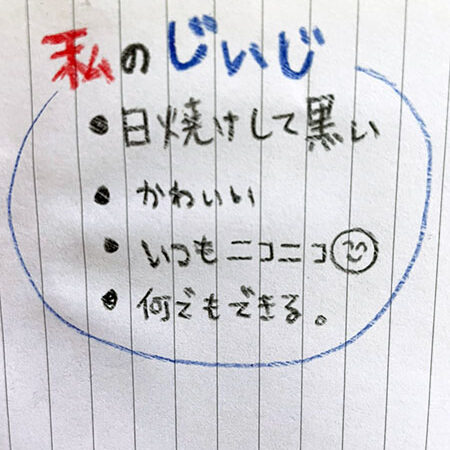 私のじいじ
• 日焼けして黒い
• かわいい
• いつもニコニコ☺
• 何でもできる。